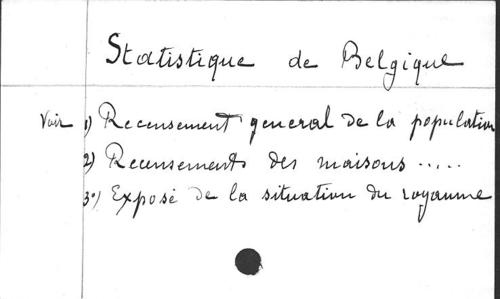 Statistique de Belgique
Voir 1) Recensement general de la population
2) Recensements des maisons .....
3°) Exposé de la situation du royaume